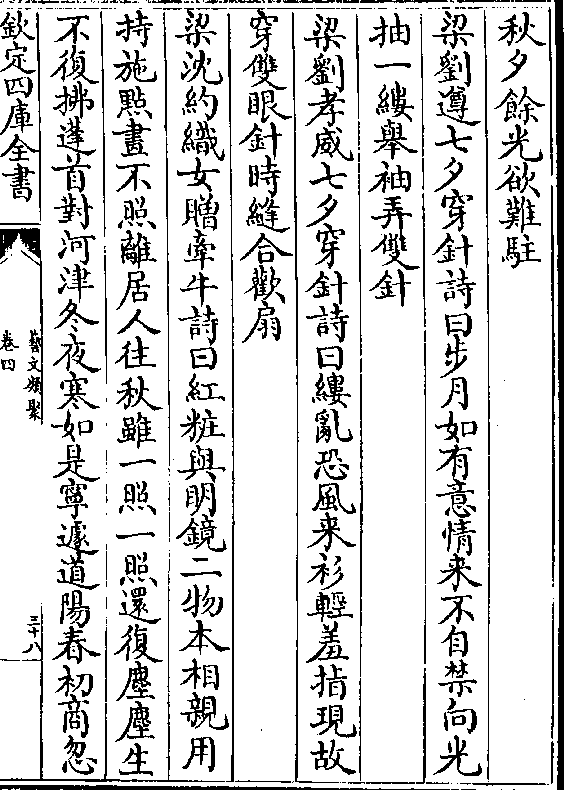 秋夕餘光欲難駐
梁劉遵七夕穿針詩曰步月如有意情来不自禁向光
抽一縷舉袖弄雙針
梁劉孝威七夕穿針詩曰縷亂恐風来衫輕羞指現故
穿雙眼針時縫合歡扇
梁沈約織女贈牽牛詩曰紅粧與明鏡二物本相親用
持施點畫不照離居人往秋雖一照一照還復塵塵生
不復拂蓬首對河津冬夜寒如是寧遽道陽春初商忽
欽定四庫全書
藝文類聚
卷四
三十八